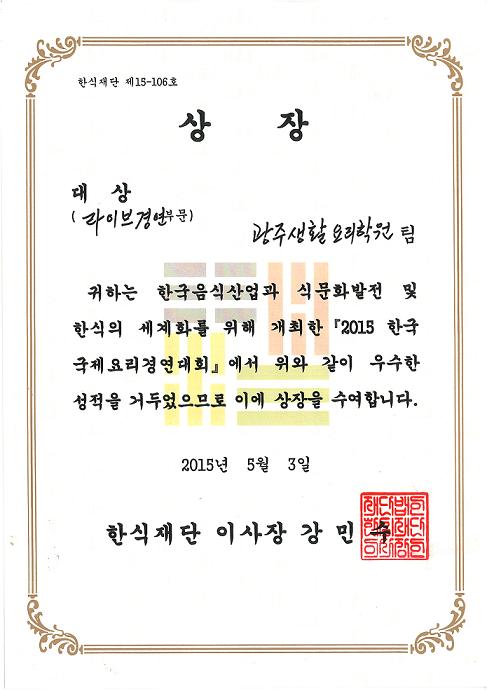 한식재단 제15-106호
상 장
대 상
(라이브경연부문)
광주생활요리학원 팀
귀하는 한국음식산업과 식문화발전 및
한식의 세계화를 위해 개최한 『2015 한국
국제요리경연대회』에서 위와 같이 우수한
성적을 거두었으므로 이에 상장을 수여합니다.
2015년 5월 3일
한식재단 이사장 강 민 수